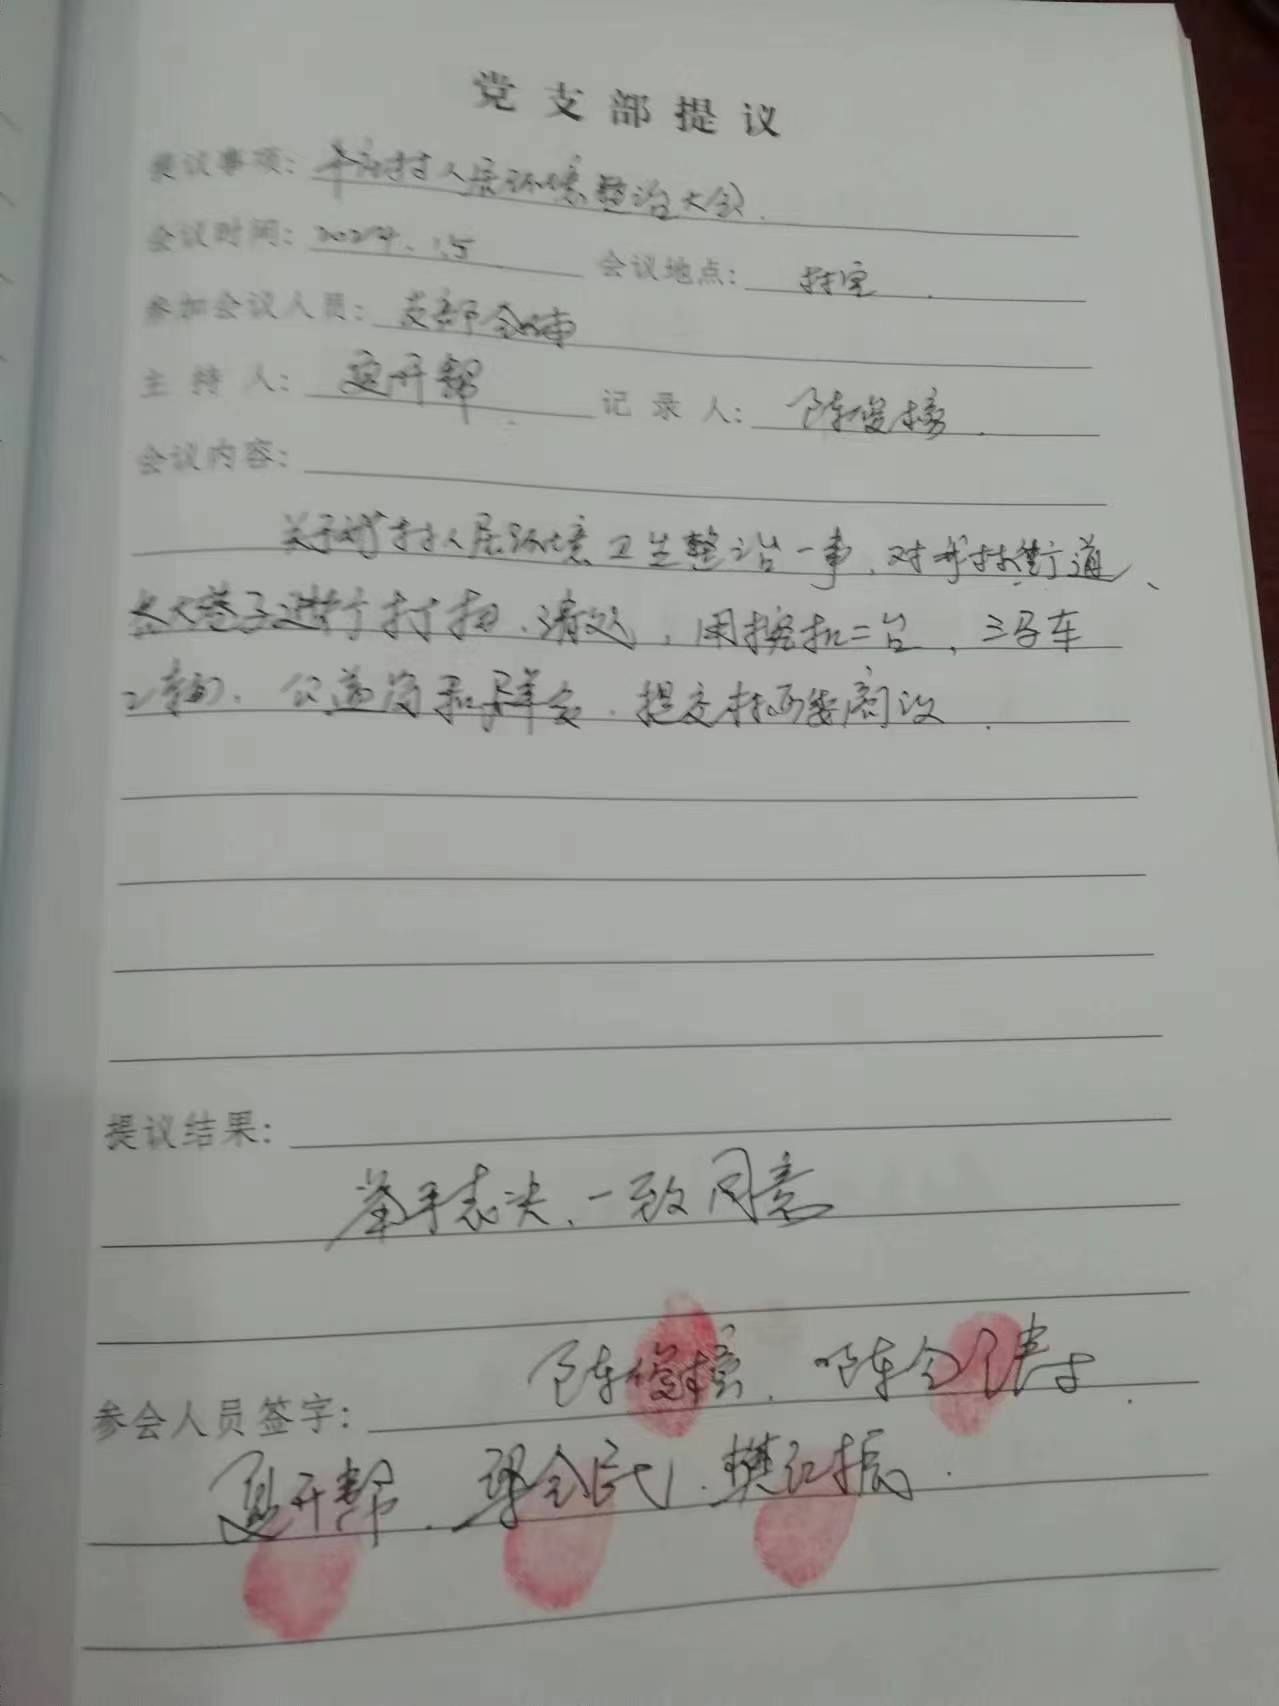 党支部提议
提议事项：村人居环境整治大会.
会议时间：2024.1.5 会议地点：村室.
参加会议人员：支部全体
主持人：夏开帮 记录人：陈俊
会议内容：
关于我村人居环境卫生整治一事,对我村街道、
大巷子进行打扫、清,用挖机二台、三马车
2辆、公益岗和群众.提交村两委商议.
提议结果：
举手表决、一致同意
陈俊 . 陈全
参会人员签字：
夏开帮. 全民. 樊红振.